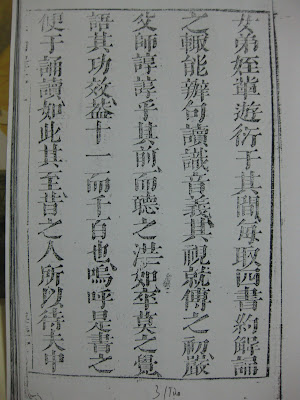 女弟姪輩遊衍于其間每取四書約解語
之輙能辦句讀識音義其視就傅之初嚴
父師諄諄乎其前而聽之茫如罕莫之覺
語其功效葢十一而千百也嗚呼是書之
便于誦讀如此其至昔之人所以待夫中